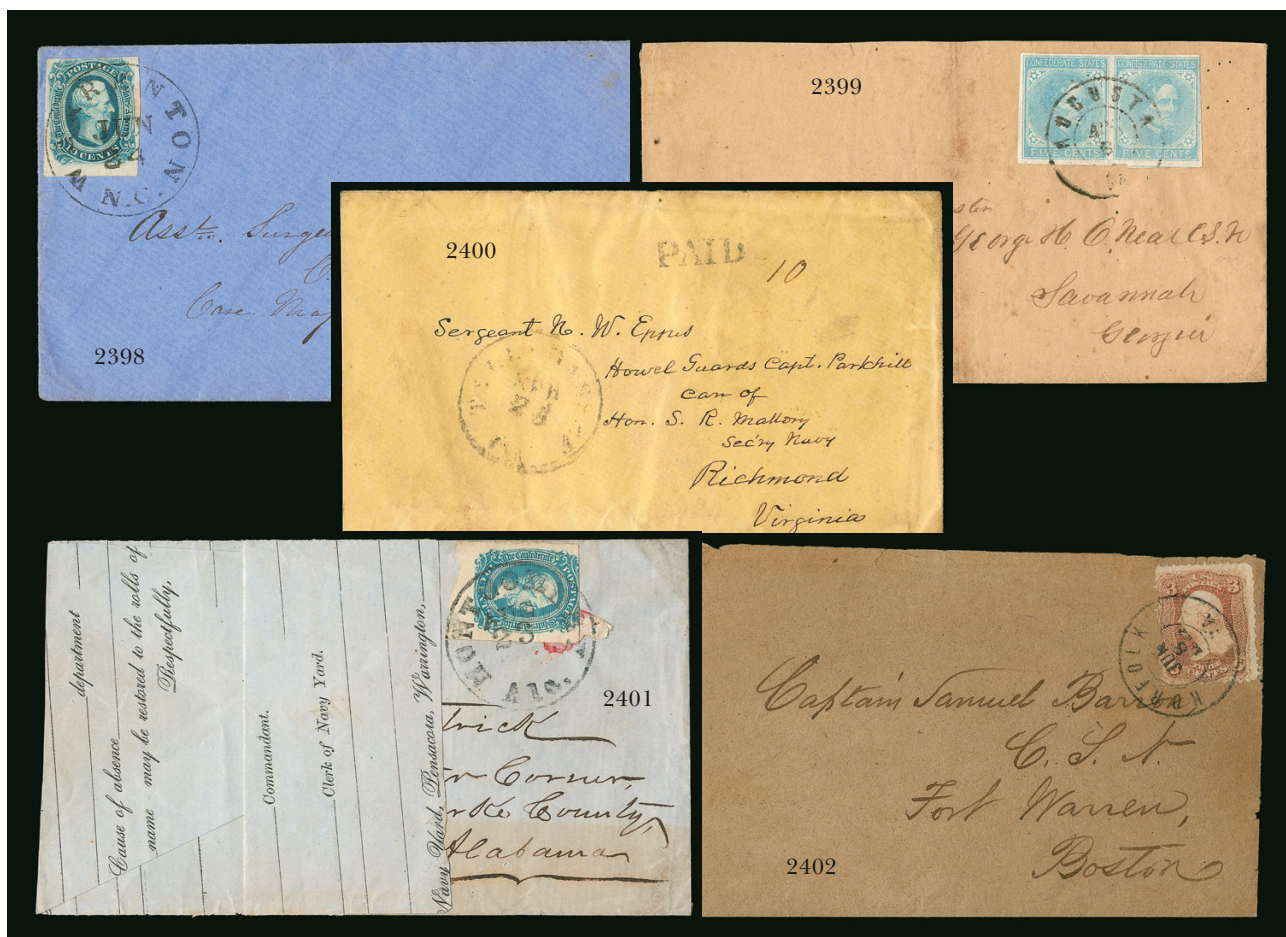 POSTAGE
10 CENTS
JUN
N.C.
Asst. Surge
Care Maj
2398
2399
CONFEDERATE STATES CONFEDERATE STATES
FIVE CENTS FIVE CENTS
AUGUSTA
George H. O.Neal C.S.N
Savannah
Georgia
2400
PAID
10
Sergeant N. W. Eppes
Howel Guards Capt. Parkhill
care of
Hon. S. R. Mallory
Sec'ry Navy
Richmond
Virginia
APR
department
Cause of absence
name may be restored to the rolls of
Respectfully,
Commandant.
Clerk of Navy Yard.
Navy Yard, Pensacola, Warrington,
The Confederate
POSTAGE
MONT
Ala.
2401
trick
Corner,
rke County,
Alabama
3
NORFOLK
VA.
JUN
Captain Samuel Barron
C. S. N.
Fort Warren,
Boston
2402